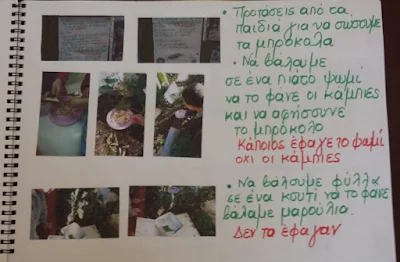 • Προτάσεις από τα
παιδιά για να σώσουμε
τα μπρόκολα
• Να βάλουμε
σε ένα πιάτο ψωμί
να το φάνε οι κάμπιες
και να αφήσουνε
το μπρόκολο
Κάποιος έφαγε το ψωμί
όχι οι κάμπιες
• Να βάλουμε φύλλα
σε ένα κουτί να το φανε
βάλαμε μαρούλια.
Δεν τα έφαγαν